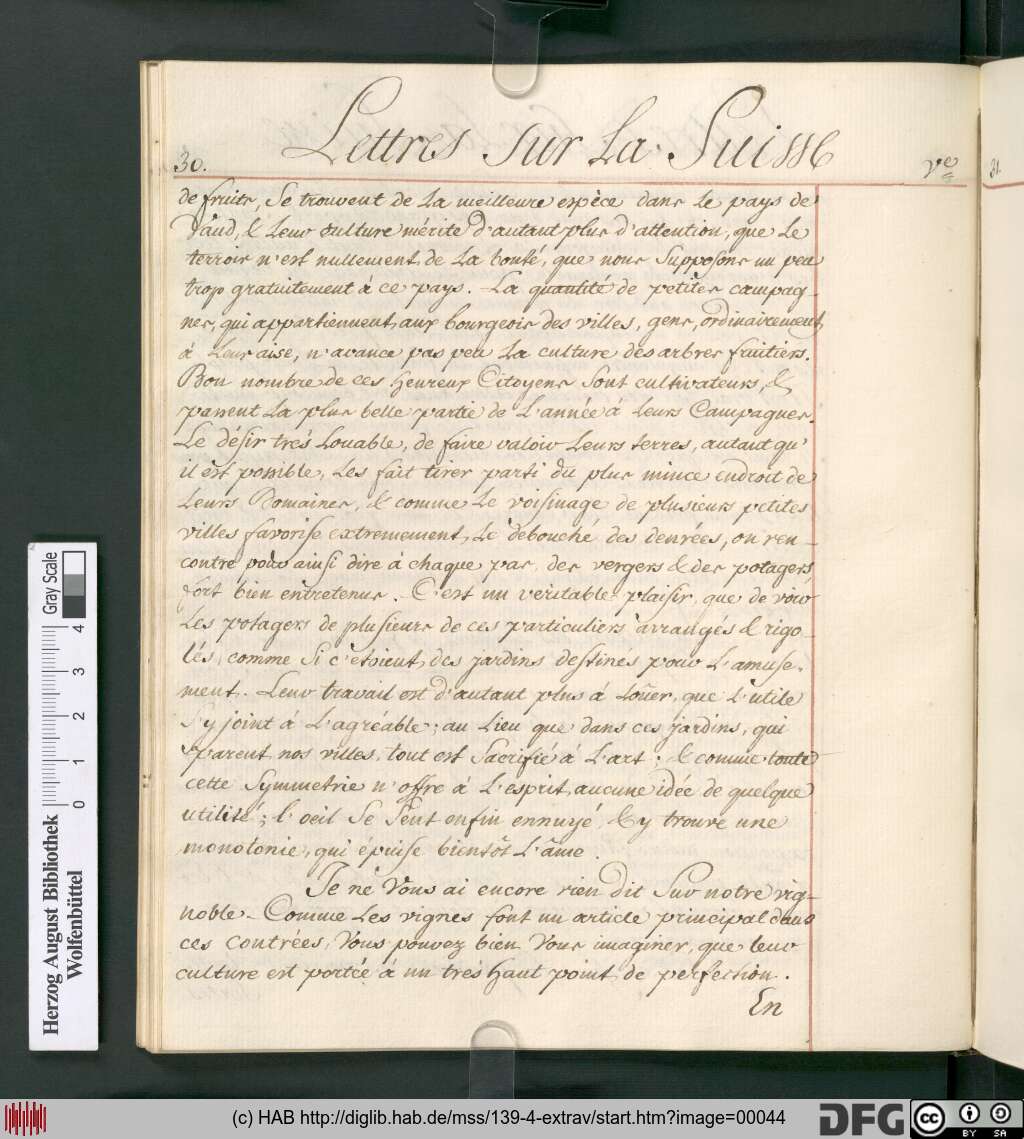 Lettres sur La Suisse
30.
Ve
31.
de fruits, Se trouvent de La meilleure espèce dans Le pays de
Vaud, & Leur culture mérite d'autant plus d'attention, que Le
terroir n'est nullement de La bonté, que nous Supposons un peu
trop gratuitement à ce pays. La quantité de petites campag-
nes, qui appartiennent aux bourgeois des villes, gens, ordinairement
à Leur aise, n'avance pas peu La culture des arbres fruitiers.
Bon nombre de ces Heureux Citoyens Sont cultivateurs, &
passent La plus belle partie de L'année à Leurs Campagnes.
Le désir très Louable, de faire valoir Leurs terres, autant qu'
il est possible, Les fait tirer parti du plus mince endroit de
Leurs Domaines, & comme Le voisinage de plusieurs petites
villes favorise extremement, Le debouché des denrées, on ren-
contre pour ainsi dire à chaque pas, des vergers & des potagers
fort bien entretenus. C'est un veritable plaisir, que de voir
Les potagers de plusieurs de ces particuliers arrangés & rigo-
lés, comme Si c'etoient, des jardins destinés pour L'amuse-
ment. Leur travail est d'autant plus à Loüer, que L'utile
S'y joint à L'agréable; au Lieu que dans ces jardins, qui
parent nos villes, tout est Sacrifié à L'art; & comme toute
cette Symmetrie n'offre à L'esprit, aucune idée de quelque
utilité; l'oeil Se Sent enfin ennuyé, & y trouve une
monotonie, qui épuise bientôt L'âme.
Je ne Vous ai encore rien dit Sur notre vig-
noble. Comme Les vignes font un article principal dans
ces contrées, Vous pouvez bien Vous imaginer, que leur
culture est portée à un très Haut point de perfection.
En
Gray Scale
0 1 2 3 4
Herzog August Bibliothek
Wolfenbüttel
(c) HAB http://diglib.hab.de/mss/139-4-extrav/start.htm?image=00044
DFG
cc BY SA